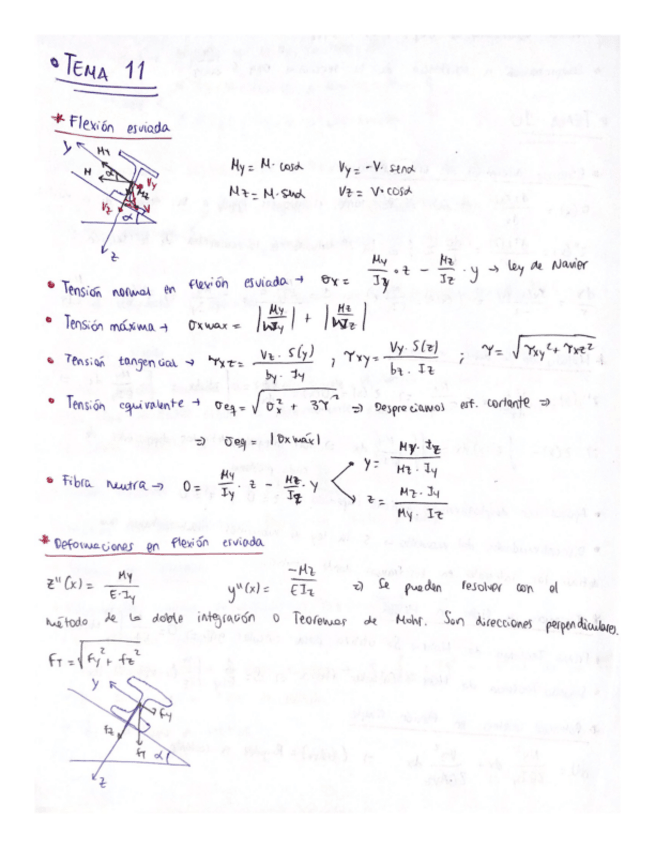 • TEMA 11
* Flexión esviada
y
My
M
α
Vy
Mz
Vz
V
α
z
My = M · cosα    Vy = -V · senα
Mz = M · senα    Vz = V · cosα
• Tensión normal en flexión esviada → σx = My/Iy · z − Mz/Iz · y → ley de Navier
• Tensión máxima → σxmax = |My/Wy| + |Mz/Wz|
• Tensión tangencial → τxz = Vz · S(y) / by · Iy ; τxy = Vy · S(z) / bz · Iz ; τ = √τxy² + τxz²
• Tensión equivalente → σeq = √σx² + 3τ² ⇒ Despreciamos esf. cortante ⇒
⇒ σeq = |σxmáx|
• Fibra neutra → 0 = My/Iy · z − Mz/Iz · y
y = My · Iz / Mz · Iy
z = Mz · Iy / My · Iz
* Deformaciones en flexión esviada
z''(x) = My / E·Iy    y''(x) = -Mz / EIz ⇒ Se pueden resolver con el
método de la doble integración o Teoremas de Mohr. Son direcciones perpendiculares.
fT = √fy² + fz²
y
fy
fz
fT
α
z